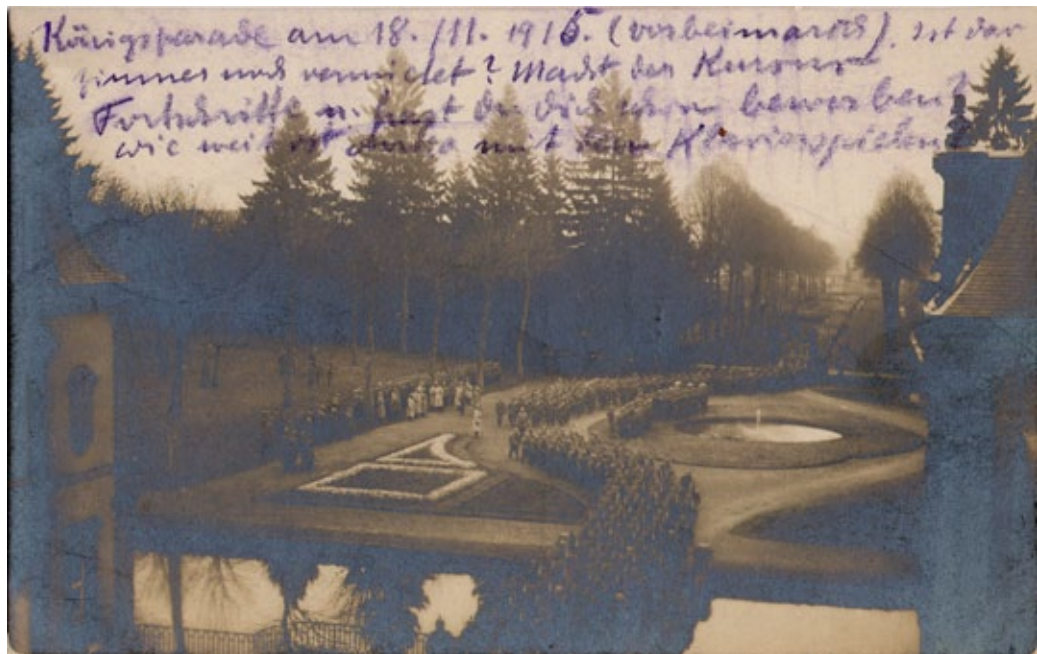 Königsparade am 18. III. 1916. (vorbeimarsch). Ist das
zimmer noch vermietet? Macht der Kursus
Fortschritte u. hast du dich schon beworben?
wie weit ist mit dem Klavierspielen?